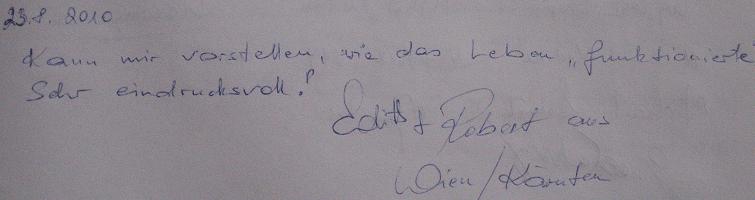 23.8. 2010
Kann mir vorstellen, wie das Leben „funktionierte
Sehr eindrucksvoll!
Edith + Robert aus
Wien/Kärnten